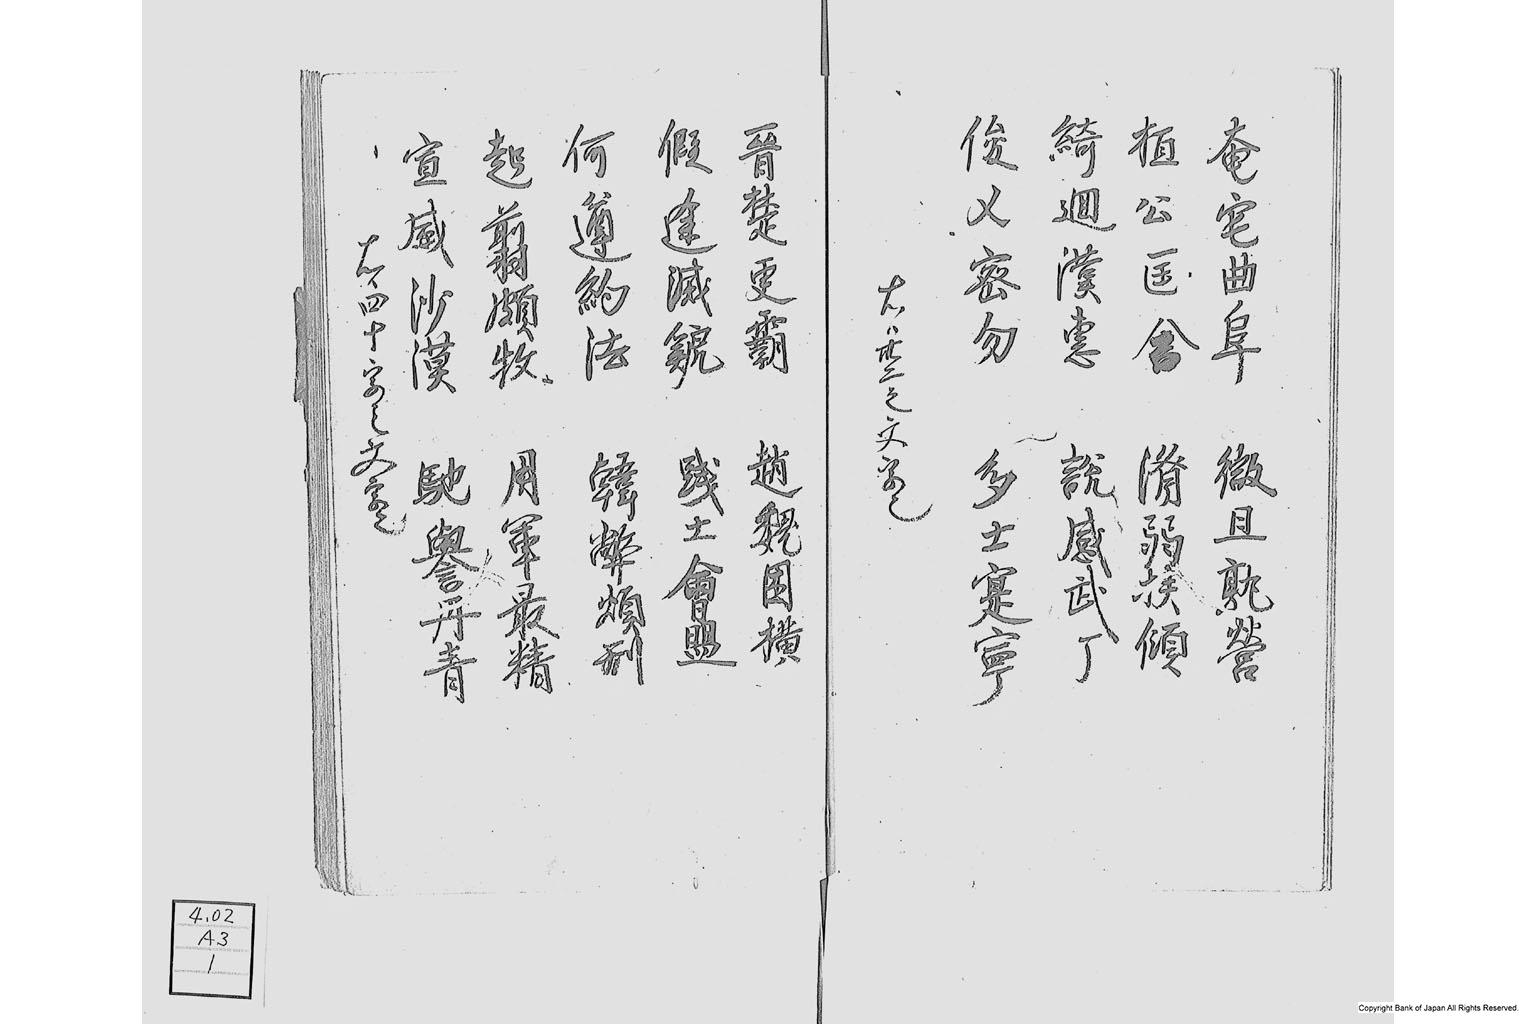 奄宅曲阜 微旦孰營
桓公匡合 濟弱扶傾
綺迴漢惠 説感武丁
俊乂密勿 多士寔寧
右ハ卅二之文字也
晉楚更霸 趙魏困横
假途滅虢 踐土會盟
何遵約法 韓弊煩刑
起翦頗牧 用軍最精
宣威沙漠 馳譽丹青
右ハ四十字之文字也
4.02
A3
1
Copyright Bank of Japan All Rights Reserved.